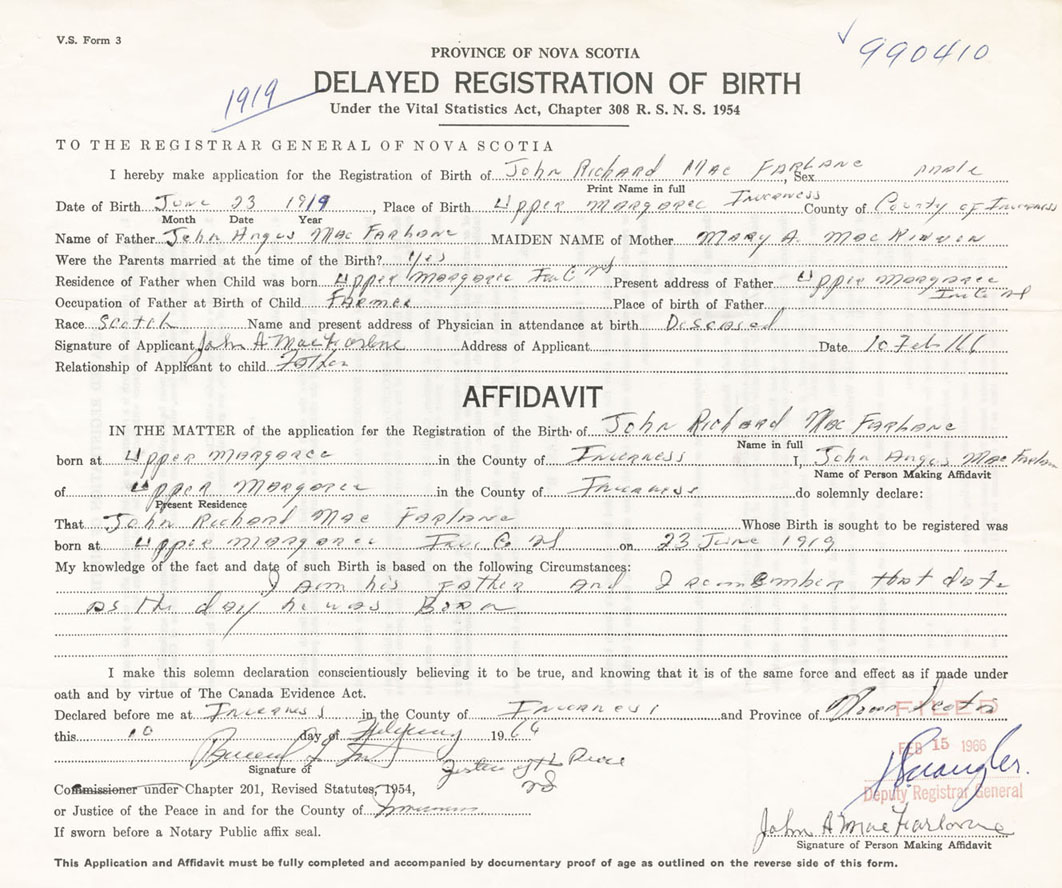 V.S. Form 3
990410
PROVINCE OF NOVA SCOTIA
1919
DELAYED REGISTRATION OF BIRTH
Under the Vital Statistics Act, Chapter 308 R. S. N. S. 1954
TO THE REGISTRAR GENERAL OF NOVA SCOTIA
I hereby make application for the Registration of Birth of John Richard Mac Farlane, Sex male
Print Name in full
Date of Birth June 23 1919, Place of Birth Upper Margaree Inverness County of County of Inverness
Month Date Year
Name of Father John Angus Mac Farlane MAIDEN NAME of Mother Mary A. MacKinnon
Were the Parents married at the time of the Birth? Yes
Residence of Father when Child was born Upper Margaree Inv Co NS Present address of Father Upper Margaree
Inv Co NS
Occupation of Father at Birth of Child Farmer Place of birth of Father
Race Scotch Name and present address of Physician in attendance at birth Deseased
Signature of Applicant John A MacFarlane Address of Applicant Date 10 Feb 166
Relationship of Applicant to child Father
AFFIDAVIT
IN THE MATTER of the application for the Registration of the Birth of John Richard Mac Farlane
Name in full
born at Upper Margaree in the County of Inverness I, John Angus Mac Farlane
Name of Person Making Affidavit
of Upper Margaree in the County of Inverness do solemnly declare:
Present Residence
That John Richard Mac Farlane Whose Birth is sought to be registered was
born at Upper Margaree Inv. Co NS on 23 June 1919
My knowledge of the fact and date of such Birth is based on the following Circumstances:
I am his Father and I remember that date
as the day he was Born
I make this solemn declaration conscientiously believing it to be true, and knowing that it is of the same force and effect as if made under
oath and by virtue of The Canada Evidence Act.
Declared before me at Inverness in the County of Inverness and Province of Nova Scotia
FILED
this 10 day of February 1966
FEB 15 1966
Signature of Justice of the Peace
Commissioner under Chapter 201, Revised Statutes, 1954,
Deputy Registrar General
or Justice of the Peace in and for the County of Inverness
John A MacFarlane
If sworn before a Notary Public affix seal.
Signature of Person Making Affidavit
This Application and Affidavit must be fully completed and accompanied by documentary proof of age as outlined on the reverse side of this form.